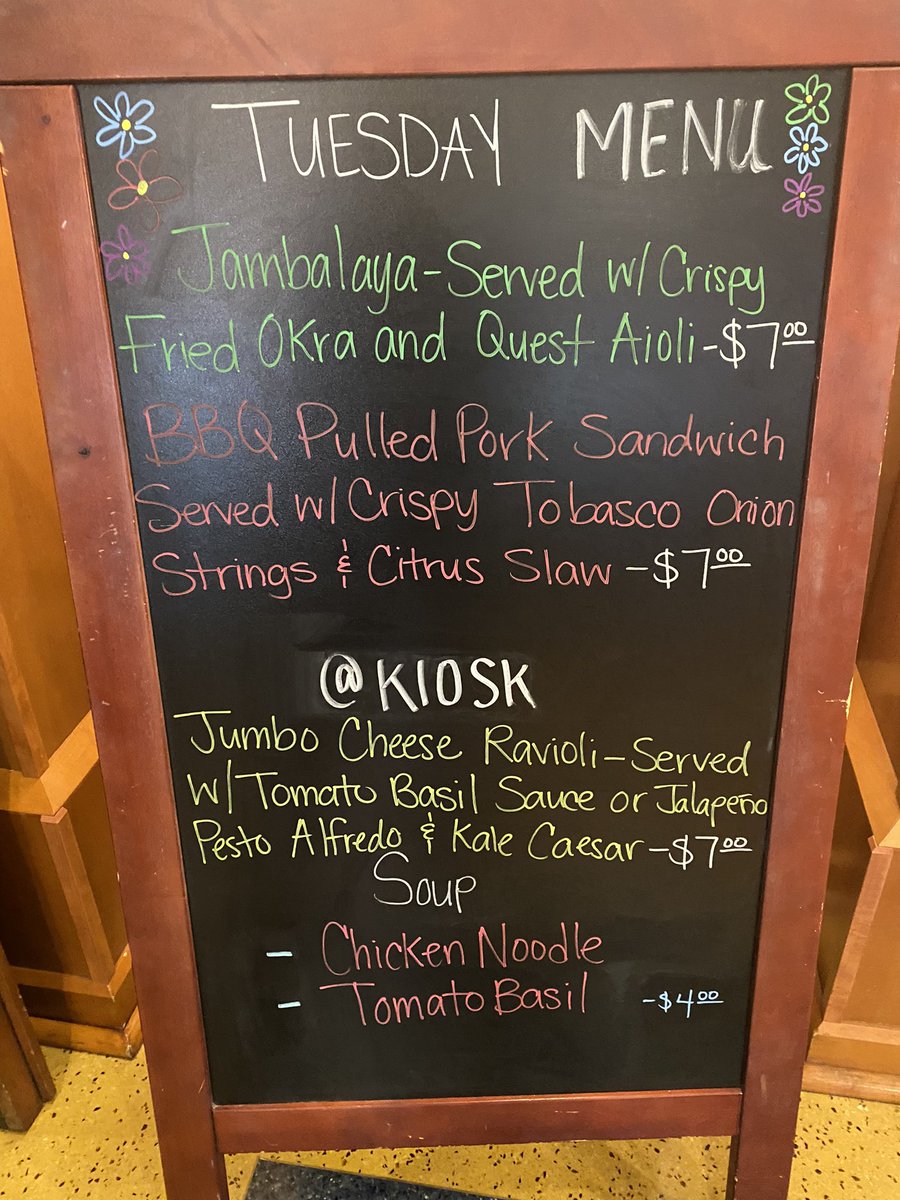 TUESDAY MENU
Jambalaya-Served w/Crispy
Fried Okra and Quest Aioli-$7.00
BBQ Pulled Pork Sandwich
Served w/Crispy Tobasco Onion
Strings & Citrus Slaw-$7.00
@KIOSK
Jumbo Cheese Ravioli-Served
w/Tomato Basil Sauce or Jalapeño
Pesto Alfredo & Kale Caesar-$7.00
Soup
- Chicken Noodle
- Tomato Basil -$4.00